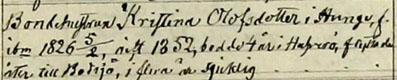 Bondehustrun Kristina Olofsdotter i Hunge, f.
ibm 1826 5/2, gift 1852, bodde 4 år i Haxsjö, flyttade
åter till Bodsjö, i flera år sjuklig